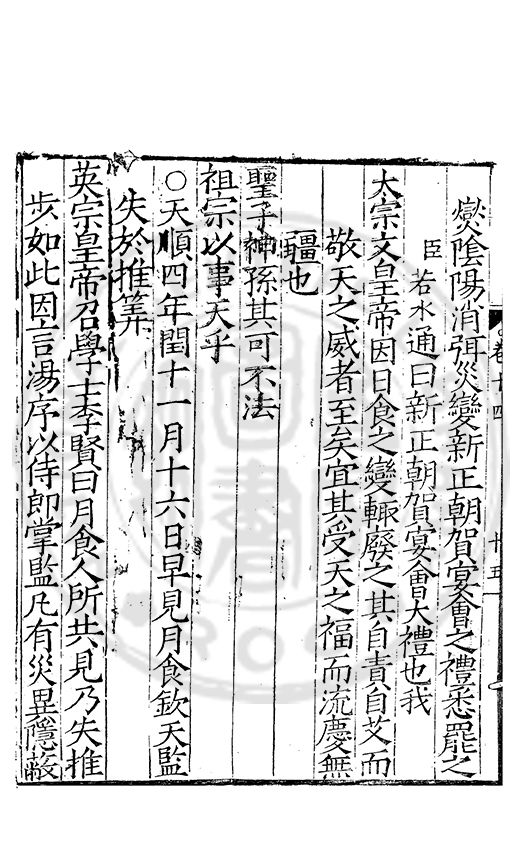 卷十四
十五
爕陰陽消弭災變新正朝賀宴會之禮悉罷之
臣若水通曰新正朝賀宴會大禮也我
太宗文皇帝因日食之變輙廢之其自責自艾而
敬天之威者至矣宜其受天之福而流慶無
疆也
聖子神孫其可不法
祖宗以事天乎
○天順四年閏十一月十六日早見月食欽天監
失於推筭
英宗皇帝召學士李賢曰月食人所共見乃失推
步如此因言湯序以侍郎掌監凡有災異隱蔽